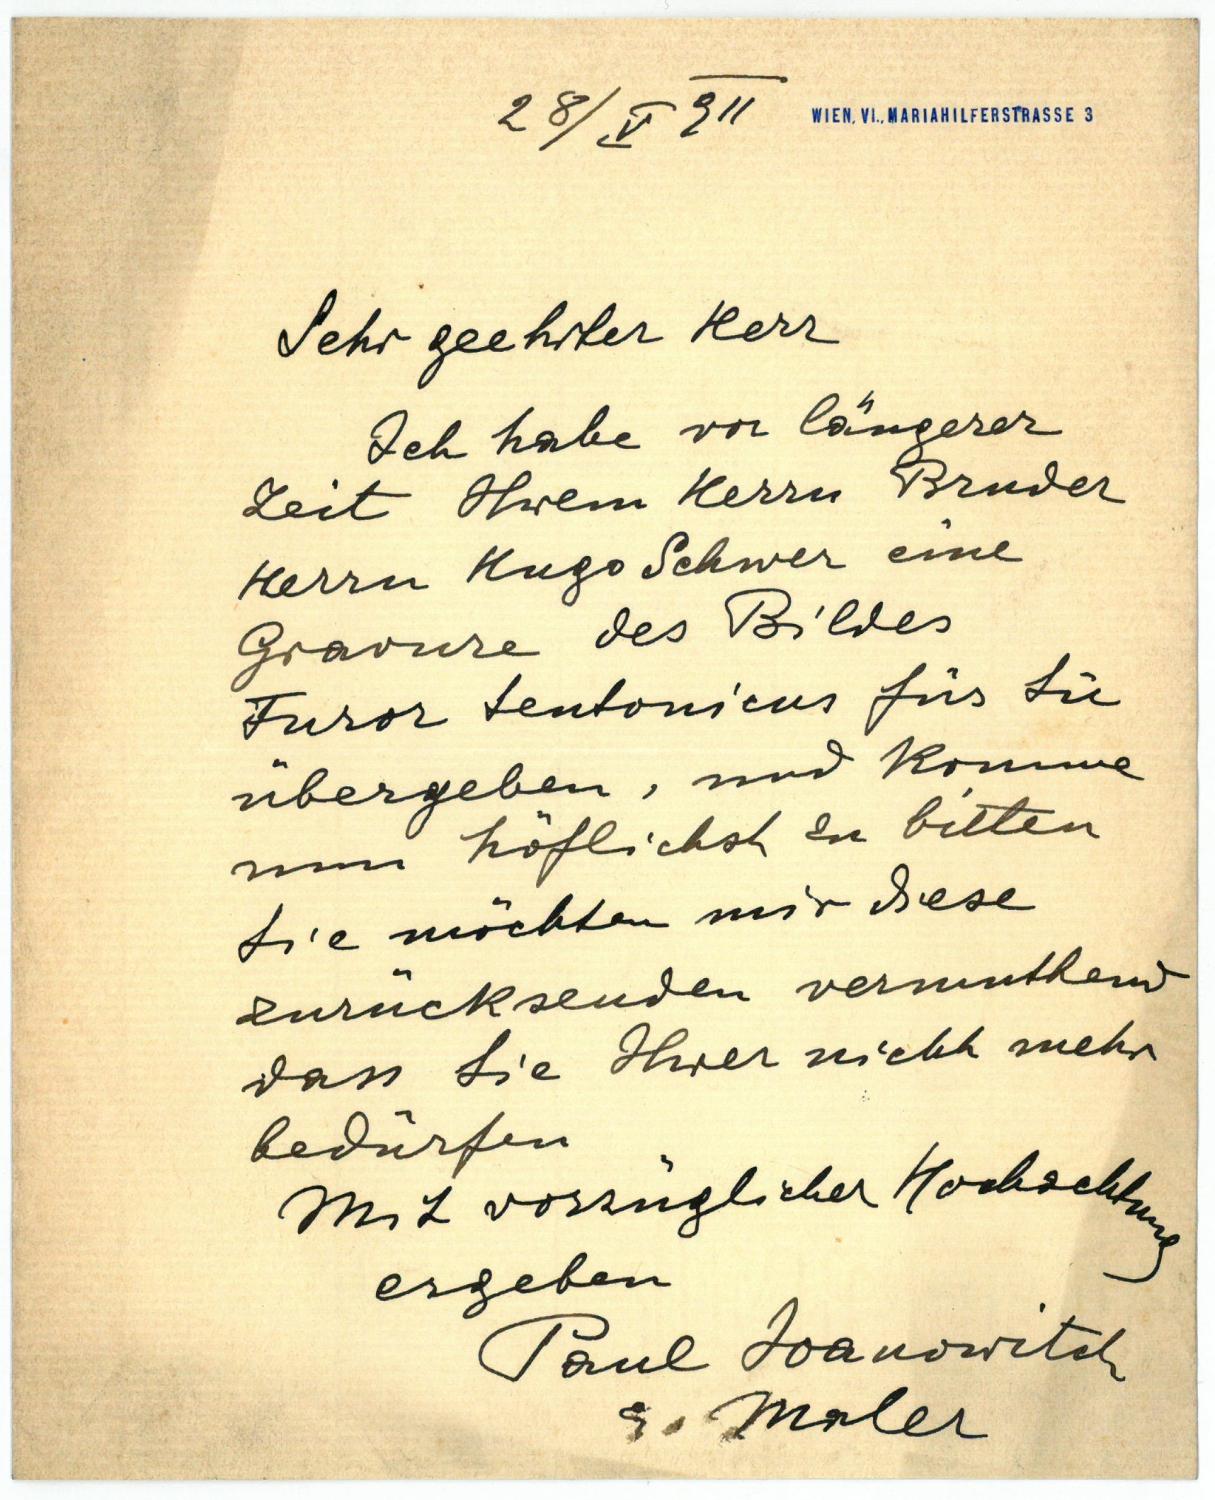 28/V 911 WIEN, VI., MARIAHILFERSTRASSE 3
Sehr geehrter Herr
Ich habe vor längerer
Zeit Ihrem Herrn Bruder
Herrn Hugo Schwer eine
Gravure des Bildes
Furor teutonicus für Sie
übergeben, und komme
nun höflichst zu bitten
Sie möchten mir diese
zurücksenden vermuthend
dass Sie Ihrer nicht mehr
bedürfen
Mit vorzüglicher Hochachtung
ergeben
Paul Joanowitch
Maler